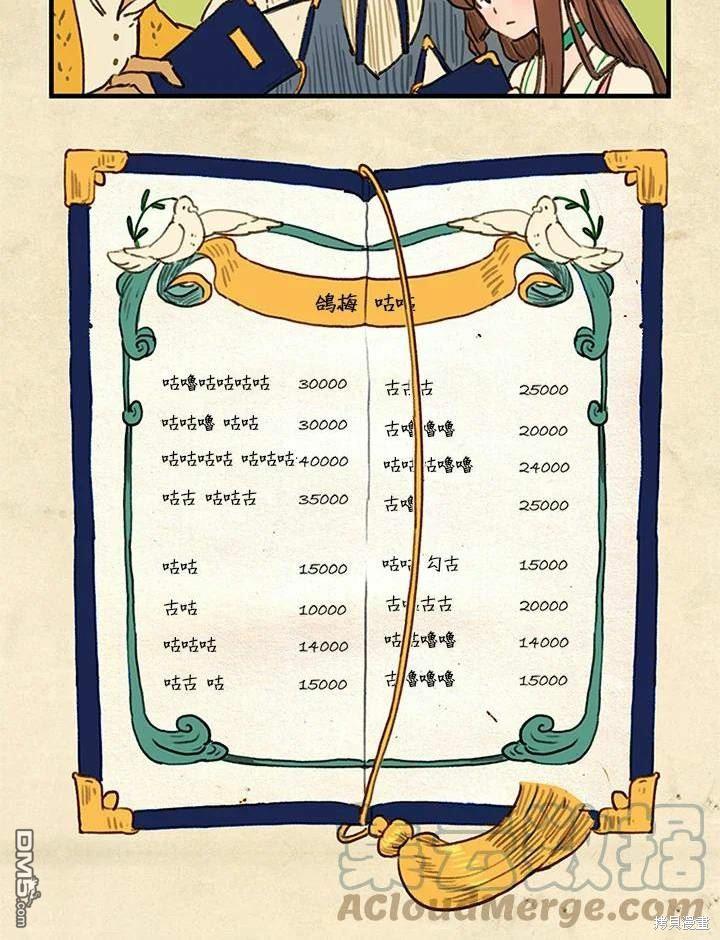 鴿梅 咕咕
咕嚕咕咕咕咕 30000
咕咕嚕 咕咕 30000
咕咕咕咕 咕咕咕 40000
咕古 咕咕古 35000
咕咕 15000
古咕 10000
咕咕咕 14000
咕古 咕 15000
古古古 25000
古嚕嚕嚕 20000
咕咕古嚕嚕 24000
古嚕 25000
咕咕 勾古 15000
古咕古古 20000
咕咕嚕嚕 14000
古嚕嚕嚕 15000
DM5.com
聚云数据
ACloudMerge.com
拷貝漫畫